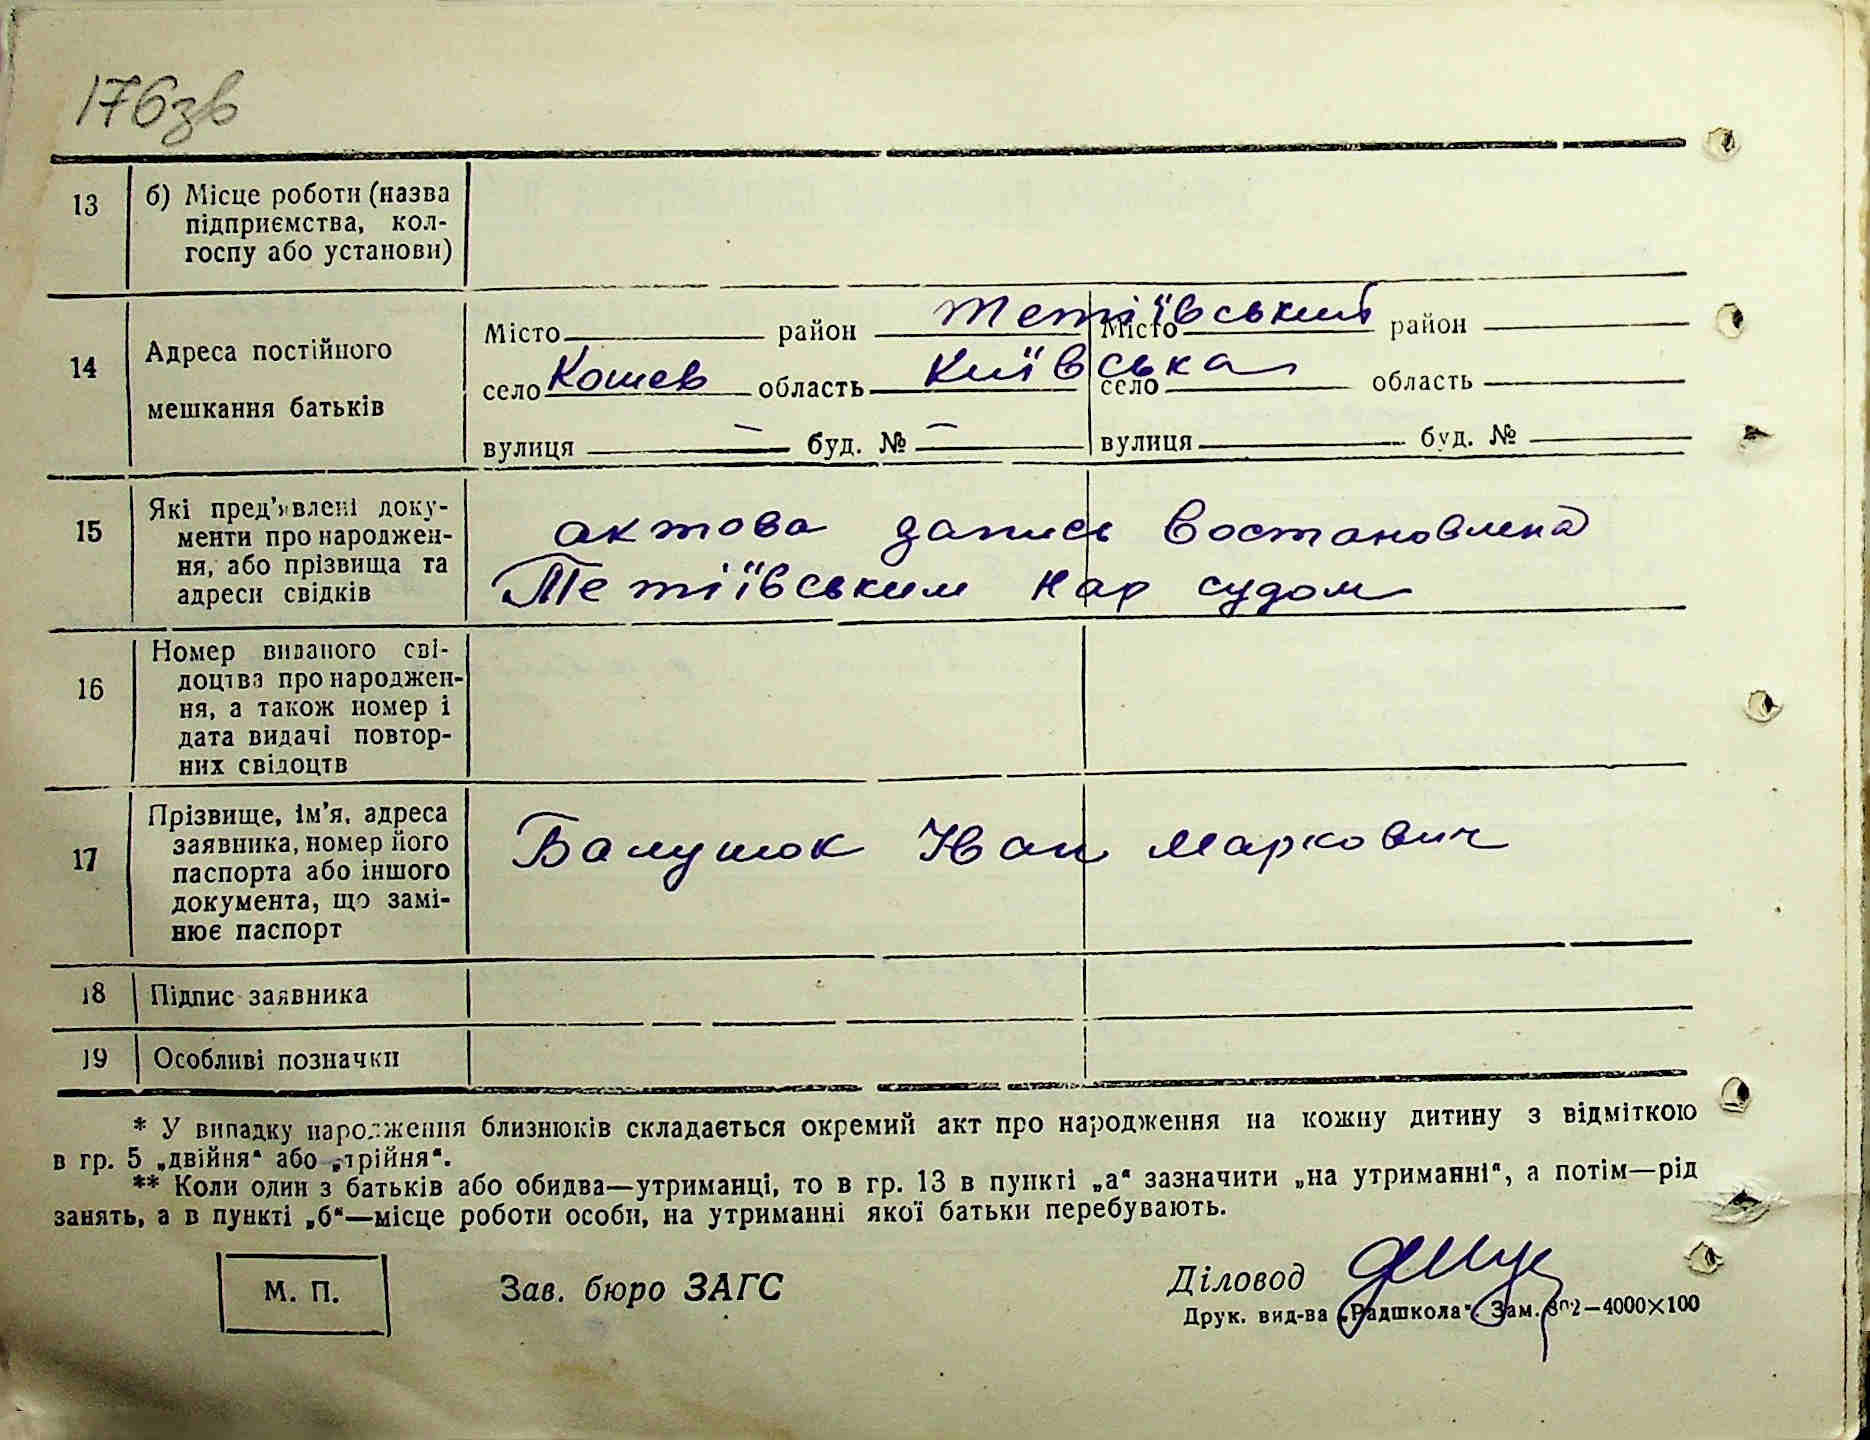 176зв
13 б) Місце роботи (назва
підприємства, кол-
госпу або установи)
14 Адреса постійного
мешкання батьків
Місто район Тетіївський Місто район
село Кошев область Київська село область
вулиця — буд. № — вулиця буд. №
15 Які пред'явлені доку-
менти про народжен-
ня, або прізвища та
адреси свідків
актова запись востановлена
Тетіївським нар судом
16 Номер виданого сві-
доцтва про народжен-
ня, а також номер і
дата видачі повтор-
них свідоцтв
17 Прізвище, ім'я, адреса
заявника, номер його
паспорта або іншого
документа, що замі-
нює паспорт
Балушок Иван Маркович
18 Підпис заявника
19 Особливі позначки
* У випадку народження близнюків складається окремий акт про народження на кожну дитину з відміткою
в гр. 5 „двійня“ або „трійня“.
** Коли один з батьків або обидва—утриманці, то в гр. 13 в пункті „а“ зазначити „на утриманні“, а потім—рід
занять, а в пункті „б“—місце роботи особи, на утриманні якої батьки перебувають.
М. П. Зав. бюро ЗАГС Діловод
Друк. вид-ва „Радшкола“. Зам. —4000×100